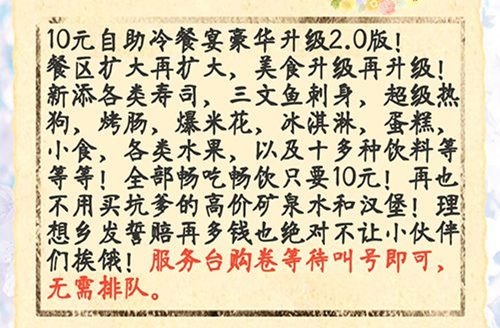 10元自助冷餐宴豪华升级2.0版!
餐区扩大再扩大，美食升级再升级!
新添各类寿司，三文鱼刺身，超级热
狗，烤肠，爆米花，冰淇淋，蛋糕，
小食，各类水果，以及十多种饮料等
等等! 全部畅吃畅饮只要10元! 再也
不用买坑爹的高价矿泉水和汉堡! 理
想乡发誓赔再多钱也绝对不让小伙伴
们挨饿! 服务台购卷等待叫号即可，
无需排队。